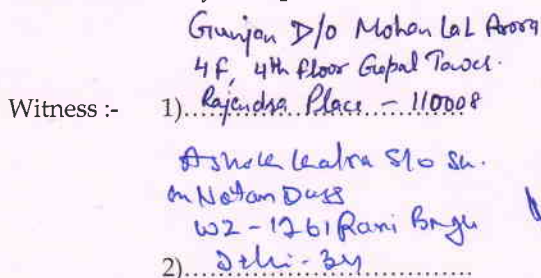 Gunjan D/o Mohan Lal Arora
4F, 4th floor Gopal Tower.
Witness :- 1)..Rajendra Place - 110008
Ashok Kalra S/o Sh.
Duss
WZ-1261 Rani Bagh
2)..Delhi-34